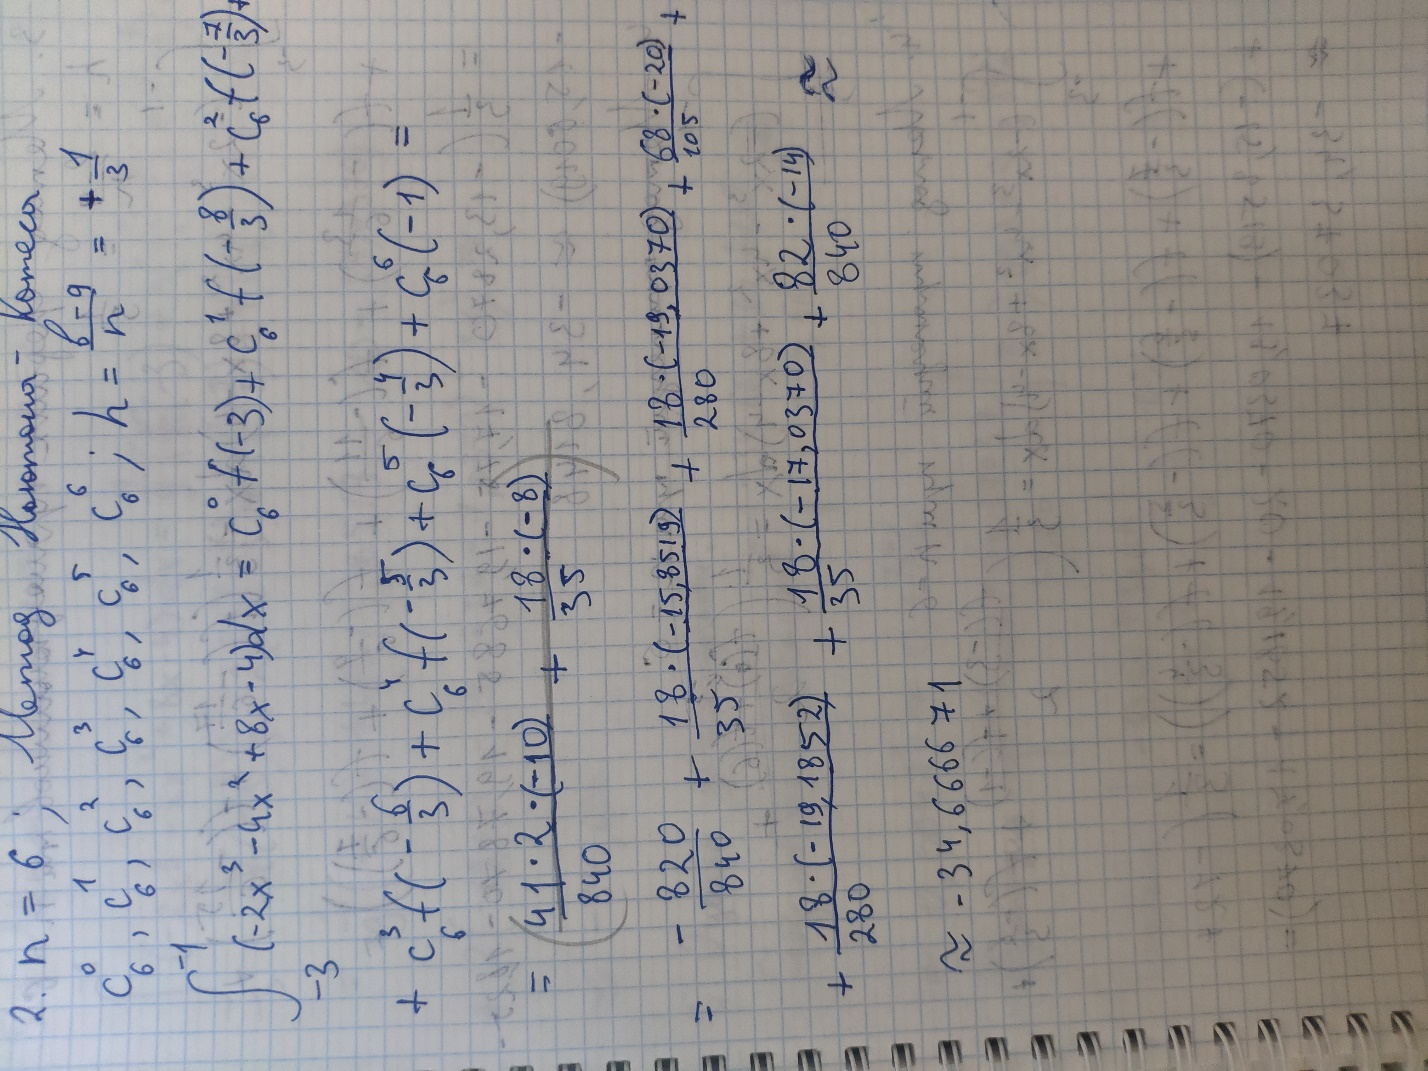 2. n = 6; Метод Ньютона - Котеса
C₆⁰, C₆¹, C₆², C₆³, C₆⁴, C₆⁵, C₆⁶; h = (в-а)/n = + 1/3
∫₋₃⁻¹ (-2x³ - 4x² + 8x - 4)dx = C₆⁰ f(-3) + C₆¹ f(-8/3) + C₆² f(-7/3) +
+ C₆³ f(-6/3) + C₆⁴ f(-5/3) + C₆⁵ (-4/3) + C₆⁶ (-1) =
= (41·2·(-10))/840 + (18·(-8))/35
= - 820/840 + (18·(-15,8519))/35 + (18·(-19,0370))/280 + (68·(-20))/105 +
+ (18·(-19,1852))/280 + (18·(-17,0370))/35 + (82·(-14))/840 ≈
≈ -34,6666671